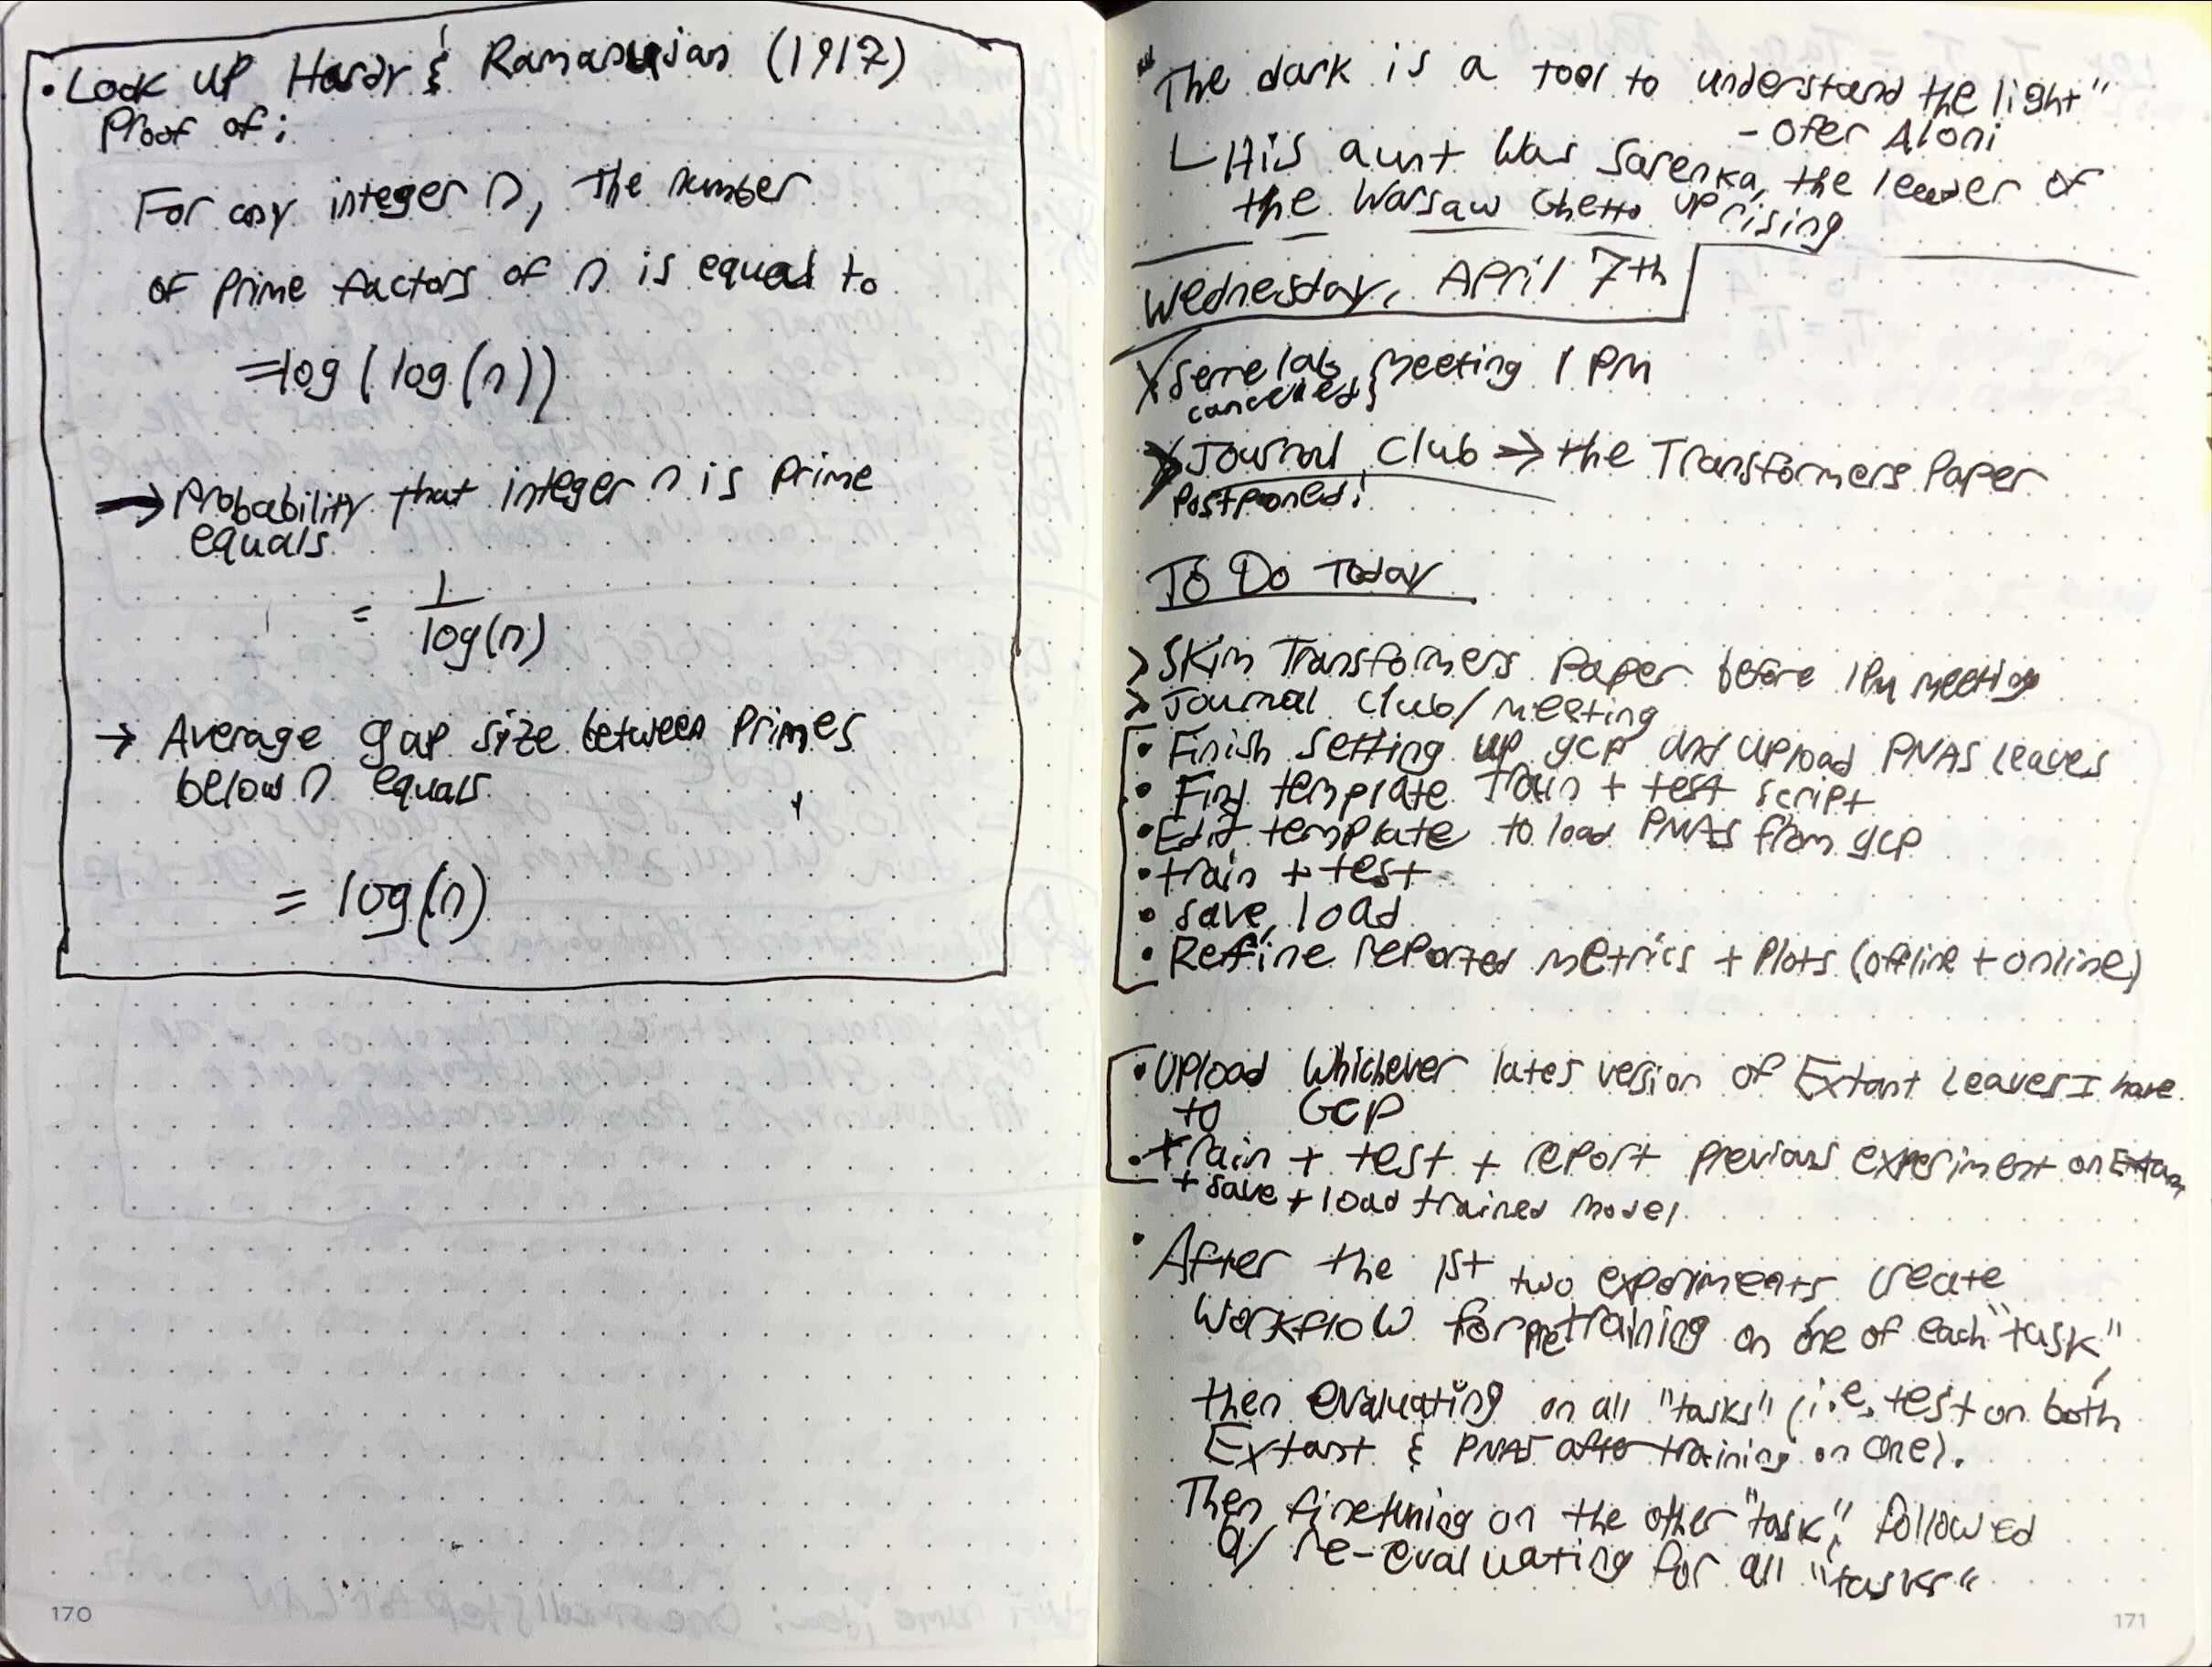 • Look up Hardy & Ramanujan (1917)
Proof of:
For any integer n, the number
of prime factors of n is equal to
= log(log(n))
→ Probability that integer n is prime
equals
= 1
log(n)
→ Average gap size between primes
below n equals
= log(n)
170
"The dark is a tool to understand the light"
- Ofer Aloni
↳ His aunt was Sarenka, the leader of
the Warsaw Ghetto uprising
Wednesday, April 7th
X Serre lab meeting 1 PM
cancelled
X Journal Club → the Transformers Paper
Postponed!
To Do Today
> Skim Transformers paper before 1PM meeting
> Journal Club/meeting
• Finish setting up gcp and upload PNAS leaves
• Find template train + test script
• Edit template to load PNAS from gcp
• train + test
• save, load
• Refine reported metrics + plots (offline + online)
• Upload whichever lates version of Extant Leaves I have
to GCP
• train + test + report previous experiment on Extant
+ save + load trained model
• After the 1st two experiments create
workflow for pretraining on one of each "task",
then evaluating on all "tasks" (i.e. test on both
Extant & PNAS after training on one).
Then finetuning on the other "task", followed
re-evaluating for all "tasks"
171